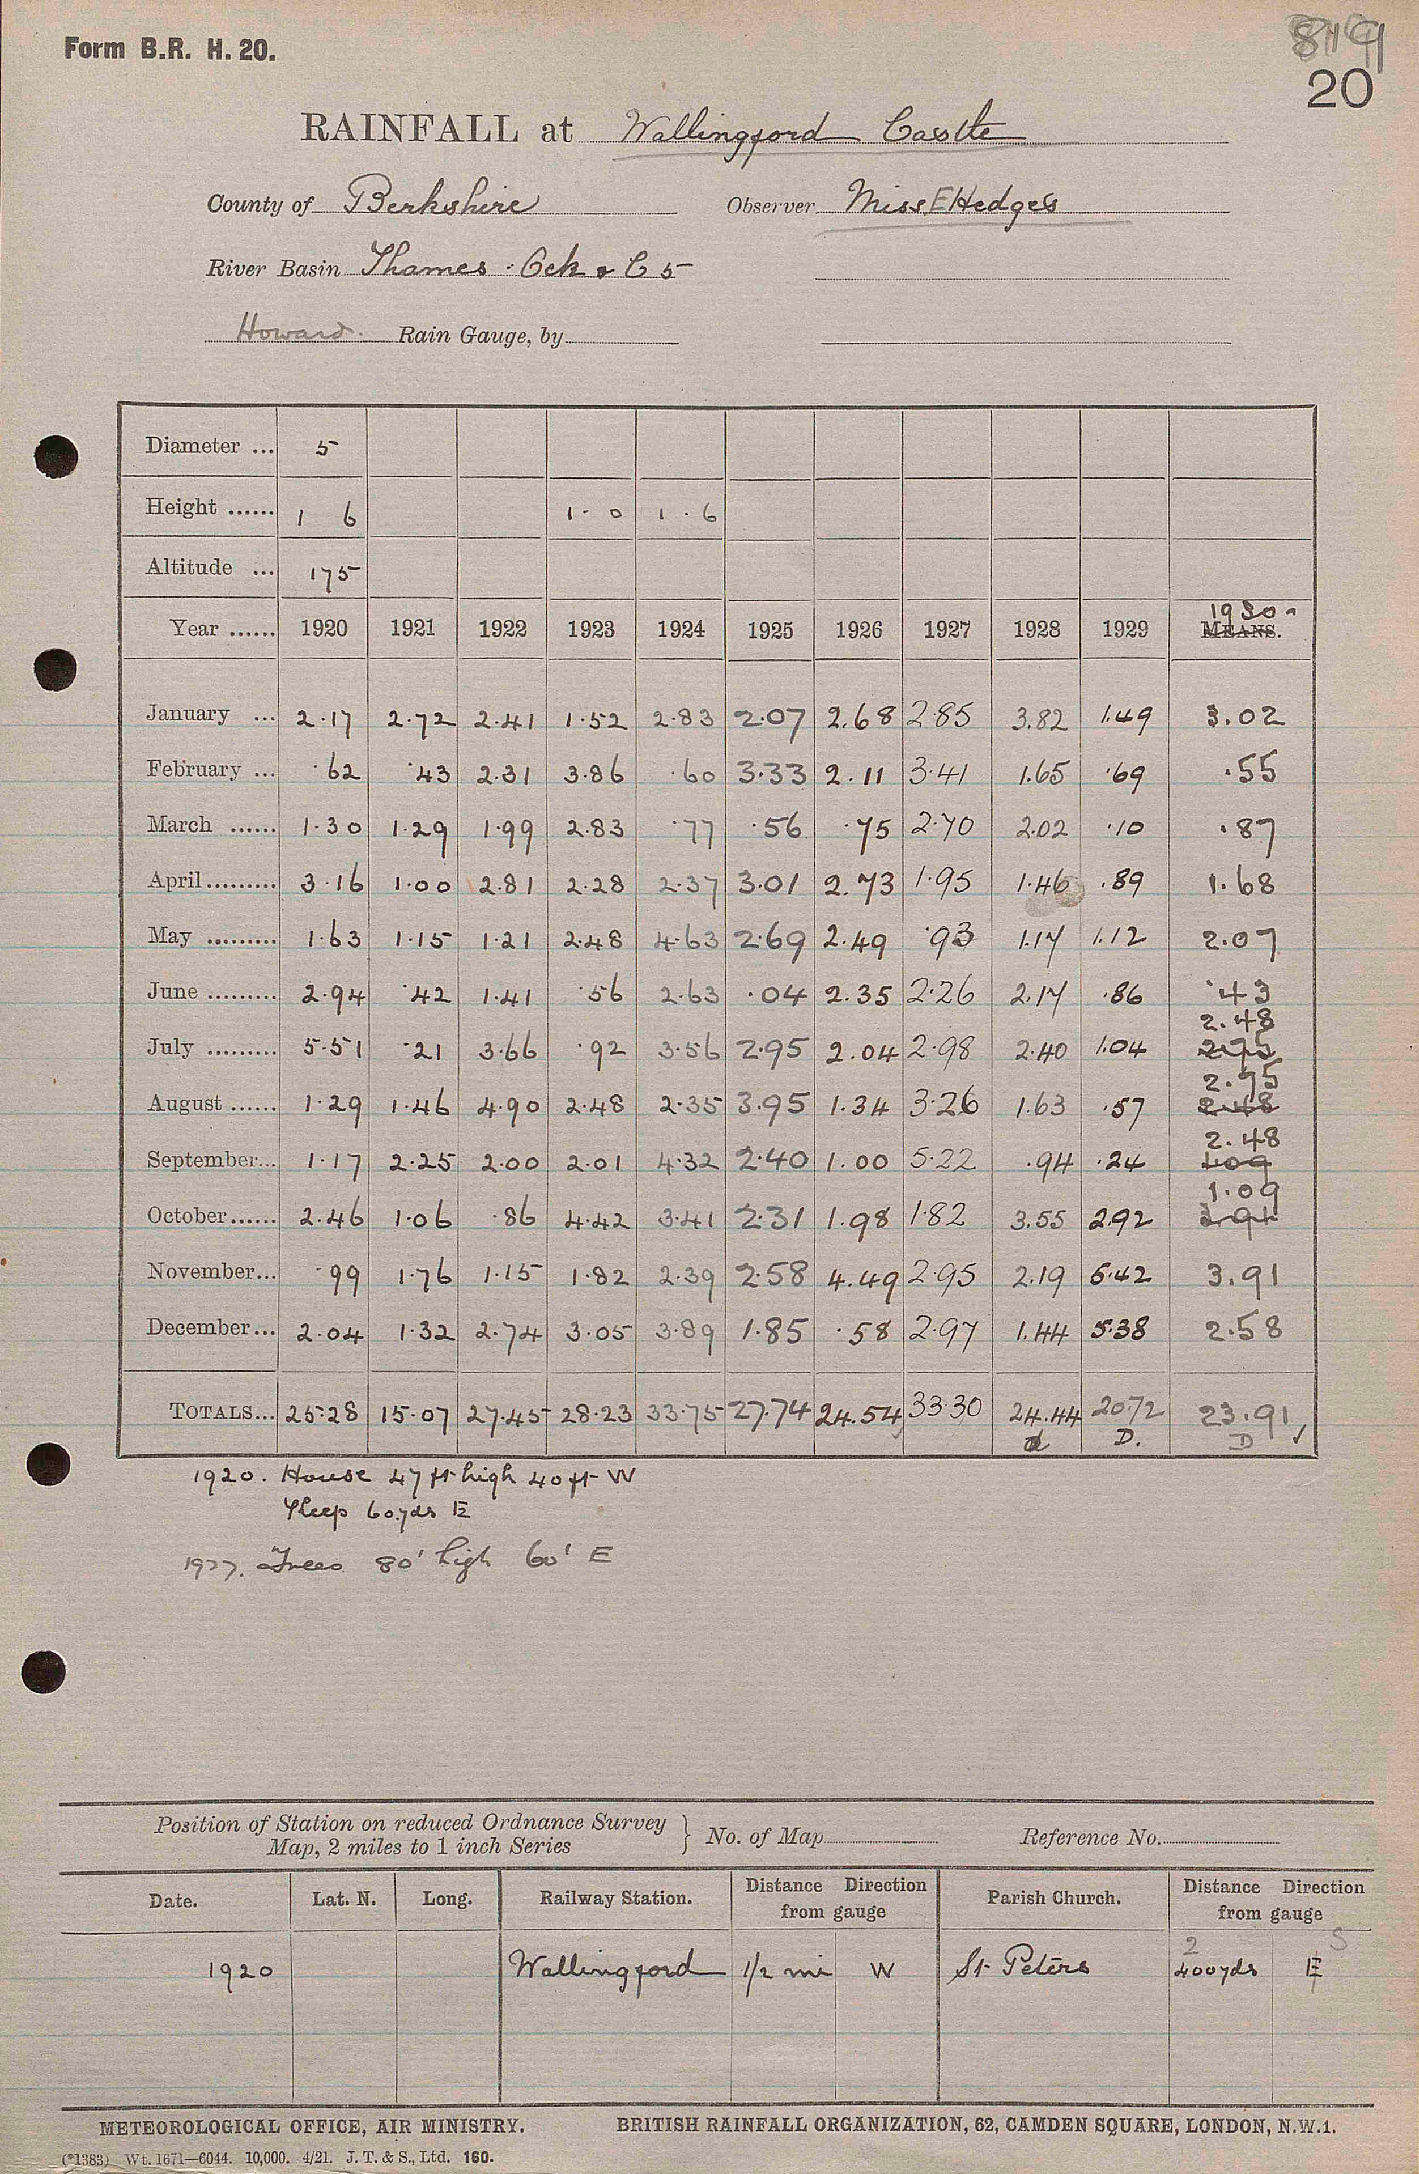 Form B.R. H. 20.
20
RAINFALL at Wallingford Castle
County of Berkshire Observer Miss E Hedges
River Basin Thames. Ock & C 5
Howard. Rain Gauge, by
Diameter ... 5
Height ...... 1 6 1 · 0 1 · 6
Altitude ... 175
1930
Year ...... 1920 1921 1922 1923 1924 1925 1926 1927 1928 1929 MEANS.
January ... 2·17 2·72 2·41 1·52 2·83 2·07 2.68 2·85 3.82 1.49 3.02
February ... ·62 ·43 2·31 3·86 ·60 3·33 2.11 3·41 1.65 ·69 ·55
March ...... 1·30 1·29 1·99 2·83 ·77 ·56 ·75 2·70 2·02 ·10 ·87
April ......... 3·16 1·00 2·81 2·28 2·37 3·01 2.73 1·95 1·46 .89 1.68
May ......... 1·63 1·15 1·21 2·48 4·63 2·69 2.49 ·93 1.17 1.12 2.07
June ......... 2·94 ·42 1·41 ·56 2·63 ·04 2.35 2·26 2.17 ·86 ·43
2.48
July ......... 5·51 ·21 3·66 ·92 3·56 2·95 2.04 2·98 2·40 1·04 2.75
2.75
August ...... 1·29 1·46 4·90 2·48 2·35 3·95 1.34 3·26 1·63 ·57 2.48
2.48
September... 1·17 2·25 2·00 2·01 4·32 2·40 1.00 5·22 ·94 ·24 1.09
1.09
October...... 2·46 1·06 ·86 4·42 3·41 2·31 1.98 1·82 3.55 2.92 3.91
November... ·99 1·76 1·15 1·82 2·39 2·58 4.49 2·95 2·19 5·42 3.91
December... 2·04 1·32 2·74 3·05 3·89 1·85 ·58 2·97 1.44 5·38 2.58
TOTALS... 25·28 15·07 27·45 28·23 33·75 27.74 24.54 33·30 24.44 20·72 23.91
d D. D
1920. House 47 ft high 40 ft W
60 yds E
1927. Trees 80' high 60' E
Position of Station on reduced Ordnance Survey Map, 2 miles to 1 inch Series } No. of Map Reference No.
Date. Lat. N. Long. Railway Station. Distance Direction from gauge Parish Church. Distance Direction from gauge
2 S
1920 Wallingford 1/2 mi W St Peters 400 yds E
METEOROLOGICAL OFFICE, AIR MINISTRY. BRITISH RAINFALL ORGANIZATION, 62, CAMDEN SQUARE, LONDON, N.W.1.
(*1383) Wt. 1671—6044. 10,000. 4/21. J. T. & S., Ltd. 160.